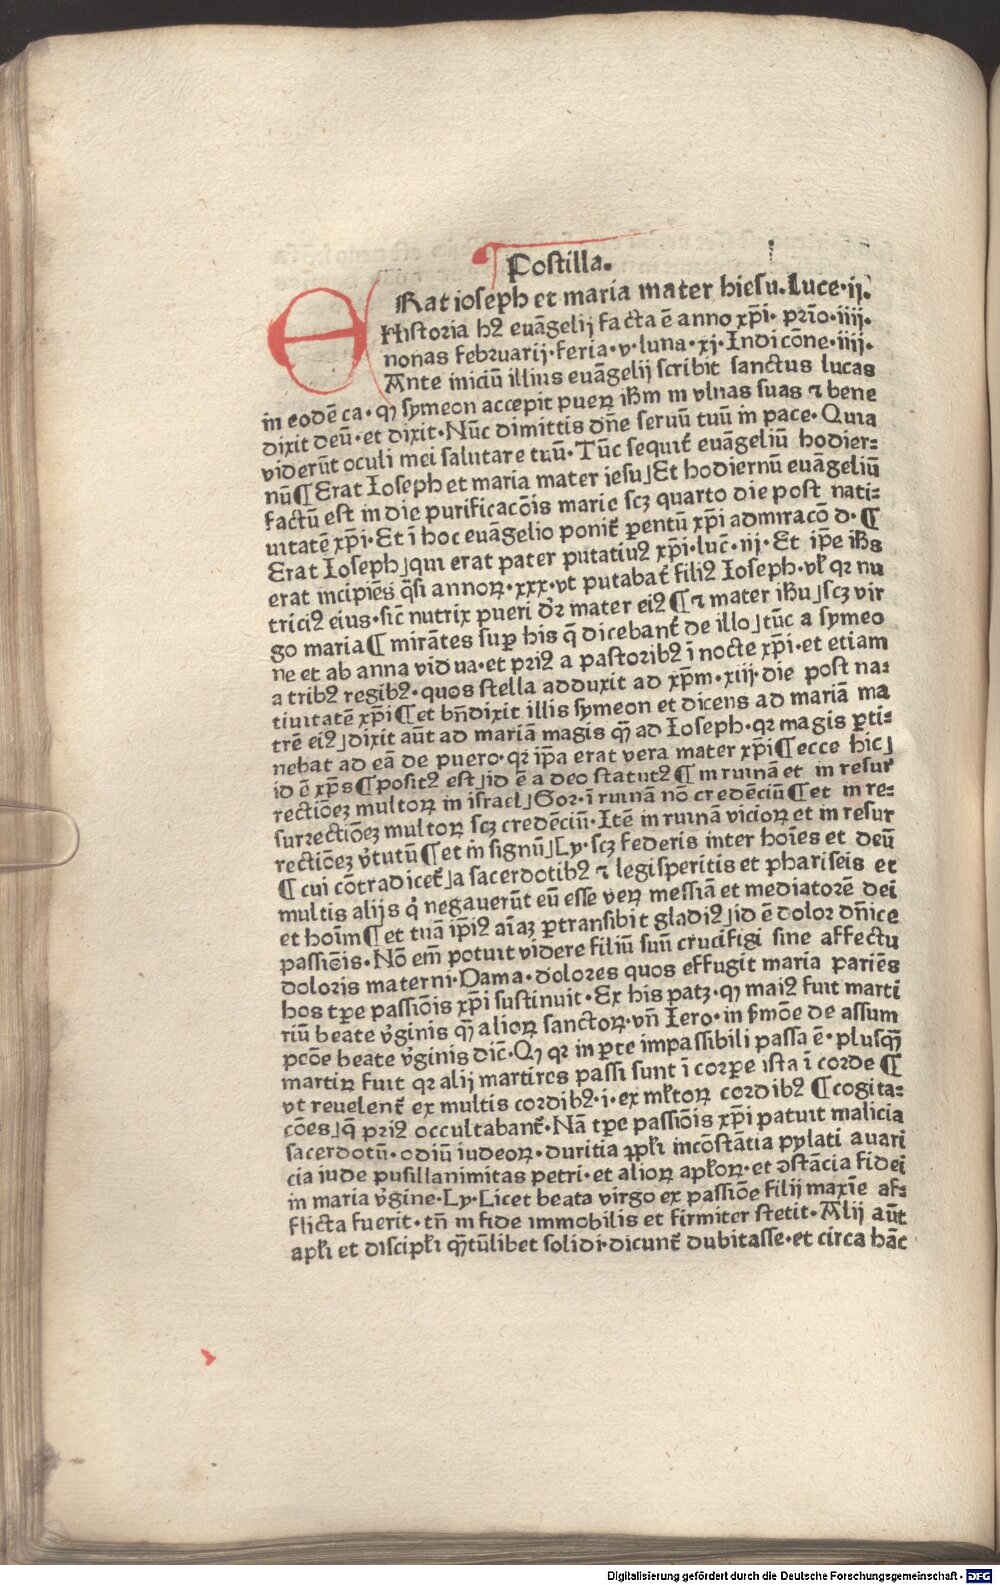 Postilla.
ERat ioseph et maria mater hiesu. Luce·ij.
Historia hꝫ euāgelij facta ē anno xp̄i· prīo·iiij·
nonas februarij·feria·v·luna·xj·Indicōne·iiij·
Ante iniciū illius euāgelij scribit sanctus lucas
in eodē ca·qꝫ symeon accepit pueꝝ ihm in vlnas suas ⁊ bene
dixit deū·et dixit·Nūc dimittis dn̄e seruū tuū in pace·Quia
viderūt oculi mei salutare tuū·Tūc sequit᷑ euāgeliū hodier⸗
nū¶Erat Ioseph et maria mater iesu⌋Et hodiernū euāgeliū
factū est in die purificacōis marie scꝫ quarto die post nati⸗
uitatē xp̄i·Et ī hoc euāgelio ponit᷑ ꝑentū xp̄i admiracō d·¶
Erat Ioseph⌋qui erat pater putatiuꝰ xp̄i·luc̄·iij·Et ip̄e ih̄s
erat incipiēs q̄si annoꝝ·xxx·vt putabat᷑ filiꝰ Ioseph·vl̓ qꝛ nu
triciꝰ eius·sic̄ nutrix pueri dr̄ mater eiꝰ¶⁊ mater ihu⌋scꝫ vir
go maria¶mirātes suꝑ his q̄ dicebant᷑ de illo⌋tūc a symeo
ne et ab anna vidua·et priꝰ a pastoribꝰ ī nocte xp̄i·et etiam
a tribꝰ regibꝰ·quos stella adduxit ad xp̄m·xiij·die post na⸗
tiuitatē xp̄i¶et bn̄dixit illis symeon et dicens ad mariā ma
trē eiꝰ⌋dixit aūt ad mariā magis q̄ꝫ ad Ioseph·qꝛ magis ꝑti⸗
nebat ad eā de puero·qꝛ ip̄a erat vera mater xp̄i¶ecce hic⌋
id ē xp̄s¶positꝰ est⌋id ē a deo statutꝰ¶in ruinā et in resur
rectiōeꝫ multoꝝ in israel⌋Gor·ī ruinā nō credēciū¶et in re⸗
surrectiōeꝫ multoꝝ scꝫ credēciū·Itē in ruinā vicioꝝ et in resur
rectiōeꝫ v̓tutū¶et in signū⌋Ly·scꝫ federis inter hoīes et deū
¶cui cōtradicet᷑⌋a sacerdotibꝰ ⁊ legisperitis et phariseis et
multis alijs q̓ negauerūt eū esse veꝝ messiā et mediatorē dei
et hoīm¶et tuā ip̄iꝰ aīaꝫ ꝑtransibit gladiꝰ⌋id ē dolor dn̄ice
passiōis·Nō em̄ potuit videre filiū suū crucifigi sine affectu
doloris materni·Dama·dolores quos effugit maria pariēs
hos tꝑe passiōis xp̄i sustinuit·Ex his patꝫ·qꝫ maiꝰ fuit marti
riū beate v̓ginis q̄ꝫ alioꝝ sanctoꝝ·vn̄ Iero·in ẜmōe de assum
pcōe beate v̓ginis dic̄·Qꝫ qꝛ in ꝑte impassibili passa ē·plusq̄ꝫ
martiꝝ fuit qꝛ alij martires passi sunt ī corꝑe ista ī corde¶
vt reuelent᷑ ex multis cordibꝰ·i·ex ml̓toꝝ cordibꝰ¶cogita⸗
cōes⌋q̄ priꝰ occultabant᷑·Nā tꝑe passiōis xp̄i patuit malicia
sacerdotū·odiū iudeoꝝ·duritia ꝓpl̓i incōstātia pylati auari
cia iude pusillanimitas petri·et alioꝝ apl̓oꝝ·et ꝯstācia fidei
in maria v̓gine·Ly·Licet beata virgo ex passiōe filij maxīe af⸗
flicta fuerit·tn̄ in fide immobilis et firmiter stetit·Alij aūt
apl̓i et discipl̓i q̄ꝫtūlibet solidi·dicunt᷑ dubitasse·et circa hāc
Digitalisierung gefördert durch die Deutsche Forschungsgemeinschaft - DFG